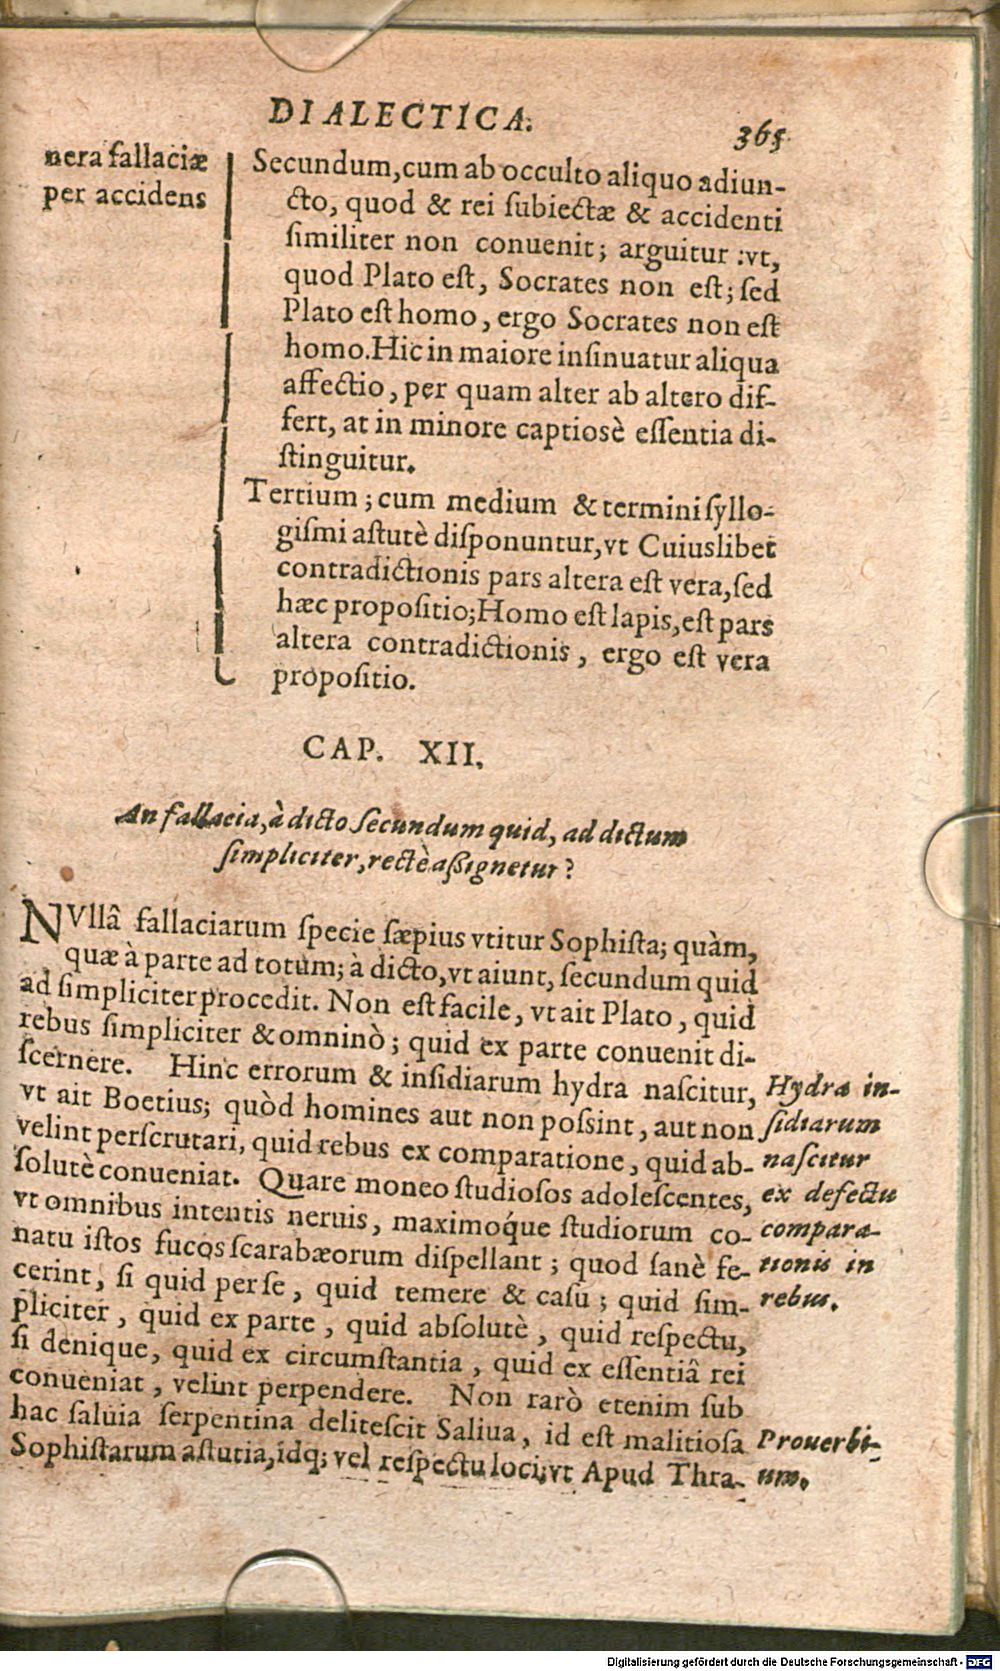 DIALECTICA.
365
nera fallaciæ
per accidens
Secundum, cum ab occulto aliquo adiun-
cto, quod & rei ſubiectæ & accidenti
ſimiliter non conuenit; arguitur : vt,
quod Plato eſt, Socrates non eſt; ſed
Plato eſt homo, ergo Socrates non eſt
homo. Hic in maiore inſinuatur aliqua
affectio, per quam alter ab altero dif-
fert, at in minore captiosè eſſentia di-
ſtinguitur.
Tertium; cum medium & termini ſyllo-
giſmi aſtutè diſponuntur, vt Cuiuslibet
contradictionis pars altera eſt vera, ſed
hæc propoſitio; Homo eſt lapis, eſt pars
altera contradictionis, ergo eſt vera
propoſitio.
CAP. XII.
An fallacia, à dicto ſecundum quid, ad dictum
ſimpliciter, rectè aßignetur?
NVllâ fallaciarum ſpecie ſæpius vtitur Sophiſta; quàm,
quæ à parte ad totum; à dicto, vt aiunt, ſecundum quid
ad ſimpliciter procedit. Non eſt facile, vt ait Plato, quid
rebus ſimpliciter & omninò; quid ex parte conuenit di-
ſcernere. Hinc errorum & inſidiarum hydra naſcitur,
vt ait Boetius; quòd homines aut non poſsint, aut non
velint perſcrutari, quid rebus ex comparatione, quid ab-
ſolutè conueniat. Quare moneo ſtudioſos adoleſcentes,
vt omnibus intentis neruis, maximoq́ue ſtudiorum co-
natu iſtos fucos ſcarabæorum diſpellant; quod ſanè fe-
cerint, ſi quid per ſe, quid temere & caſu; quid ſim-
pliciter, quid ex parte, quid abſolutè, quid reſpectu,
ſi denique, quid ex circumſtantia, quid ex eſſentiâ rei
conueniat, velint perpendere. Non rarò etenim ſub
hac ſaluia ſerpentina deliteſcit Saliua, id eſt malitioſa
Sophiſtarum aſtutia, idq; vel reſpectu loci; vt Apud Thra-
Hydra in-
ſidiarum
naſcitur
ex defectu
compara-
tionis in
rebus.
Prouerbi-
um.
Digitalisierung gefördert durch die Deutsche Forschungsgemeinschaft - DFG